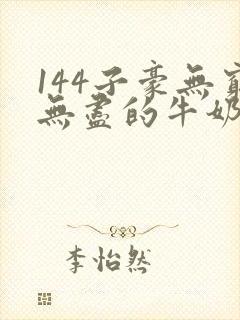 144子豪無窮
無盡的牛奶
李怡然